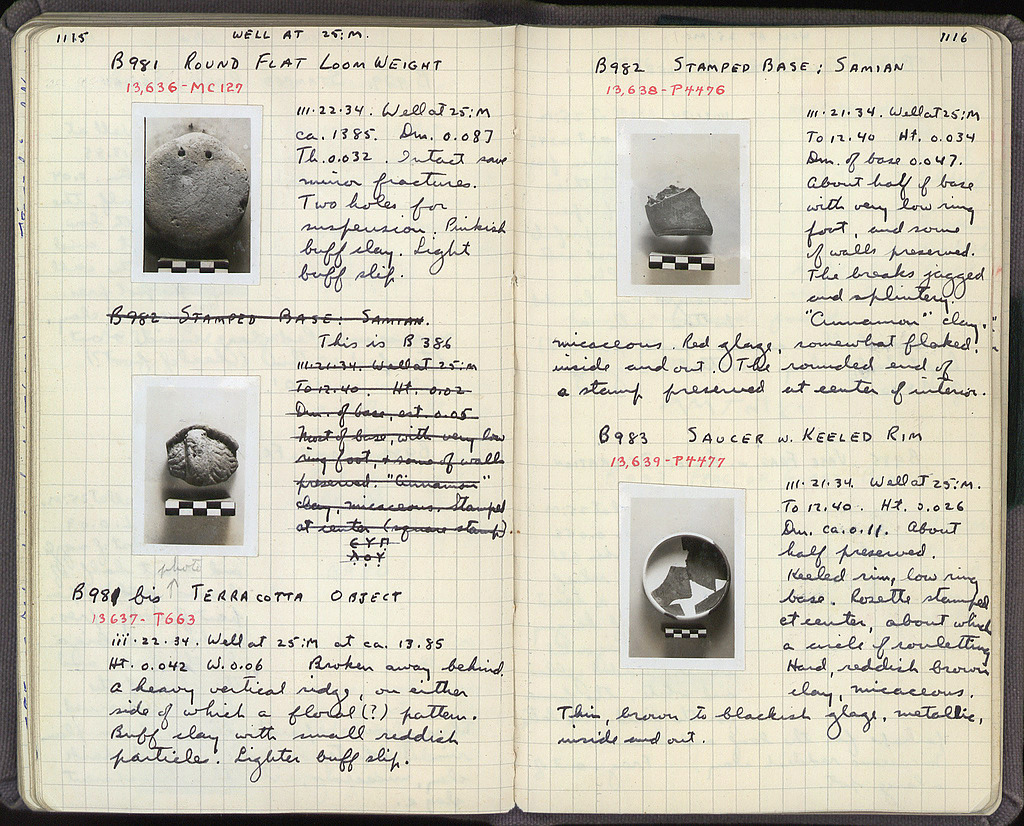 1115
WELL AT 25:M.
B981 ROUND FLAT LOOM WEIGHT
13,636-MC127
III.22.34. Well at 25:M
ca. 1385. Dm. 0.087
Th. 0.032. Intact save
minor fractures.
Two holes for
suspension. Pinkish
buff clay. Light
buff slip.
B982 STAMPED BASE: SAMIAN.
This is B 386
III.21.34. Well at 25:M
To 12.40. Ht. 0.02
Dm. of base, est. 0.05
Most of base, with very low
ring foot, & some of walls
preserved. "Cinnamon"
clay, micaceous. Stamped
at center (square stamp).
ЄΥΠ
ΛΟΥ
photo
↑
B981 bis TERRACOTTA OBJECT
13637-T663
iii.22.34. Well at 25:M at ca. 13.85
Ht. 0.042 W. 0.06 Broken away behind.
A heavy vertical ridge, on either
side of which a floral (?) pattern.
Buff clay with small reddish
particles. Lighter buff slip.
1116
B982 STAMPED BASE: SAMIAN
13,638-P4476
III.21.34. Well at 25:M
To 12.40 Ht. 0.034
Dm. of base 0.047.
About half of base
with very low ring
foot, and some
of walls preserved.
The breaks jagged
and splintery.
"Cinnamon" clay,
micaceous. Red glaze, somewhat flaked,
inside and out. The rounded end of
a stamp preserved at center of interior.
B983 SAUCER W. KEELED RIM
13,639-P4477
III.21.34. Well at 25:M.
To 12.40. Ht. 0.026
Dm. ca. 0.11. About
half preserved.
Keeled rim, low ring
base. Rosette stamped
at center, about which
a circle of rouletting
Hard, reddish brown
clay, micaceous.
Thin, brown to blackish glaze, metallic,
inside and out.